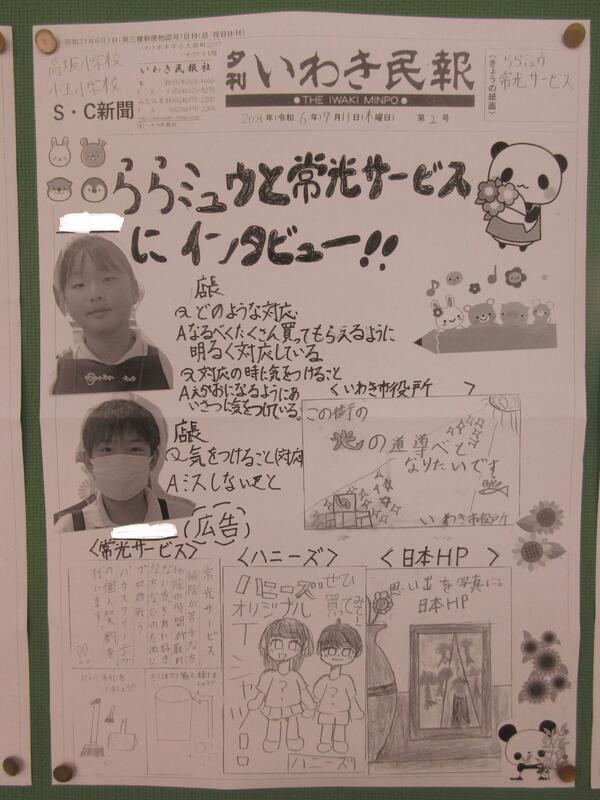 昭和21年6月1日(第三種郵便物認可)日刊(日・祝日休刊)
高坂小学校
小玉小学校
S・C新聞
いわき民報社
夕刊 いわき民報
THE IWAKI MINPO
2024年(令和6年)7月11日(木曜日) 第2号
〈きょうの紙面〉
ららミュウ
常光サービス
ららミュウと常光サービス
にインタビュー!!
店長
Q どのような対応
A なるべくたくさん買ってもらえるように
明るく対応している。
Q 対応の時に気をつけること
A えがおになるようにあ
いさつに気をつけている。
店長
Q 気をつけること(対応
A ミスしないこと
(広告)
〈いわき市役所 〉
この街の
光の道導べと
なりたいです
いわき市役所
〈常光サービス〉
常光サービス
〈ハニーズ〉
ハニーズ ぜひ
オリジナル 買ってみてー!
Tシャツ
ハニーズ
〈日本HP 〉
思い出を写真に
日本HP